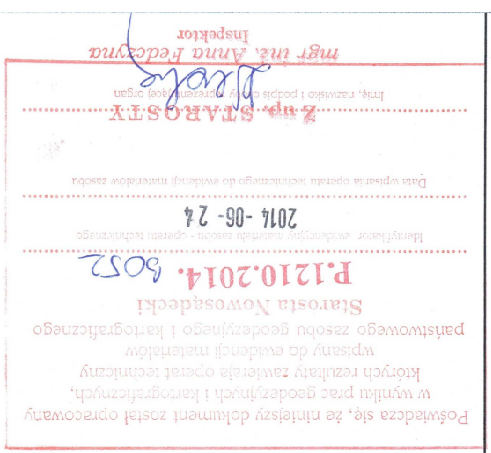 Poświadcza się, że niniejszy dokument został opracowany
w wyniku prac geodezyjnych i kartograficznych,
których rezultaty zawiera operat techniczny
wpisany do ewidencji materiałów
państwowego zasobu geodezyjnego i kartograficznego
Starosta Nowosądecki
P.1210.2014. 3052
Identyfikator ewidencyjny materiału zasobu - operatu technicznego
2014 -06- 24
Data wpisania operatu technicznego do ewidencji materiałów zasobu
Z up. STAROSTY
Imię, nazwisko i podpis osoby reprezentującej organ
mgr inż. Anna Fedczyna
Inspektor